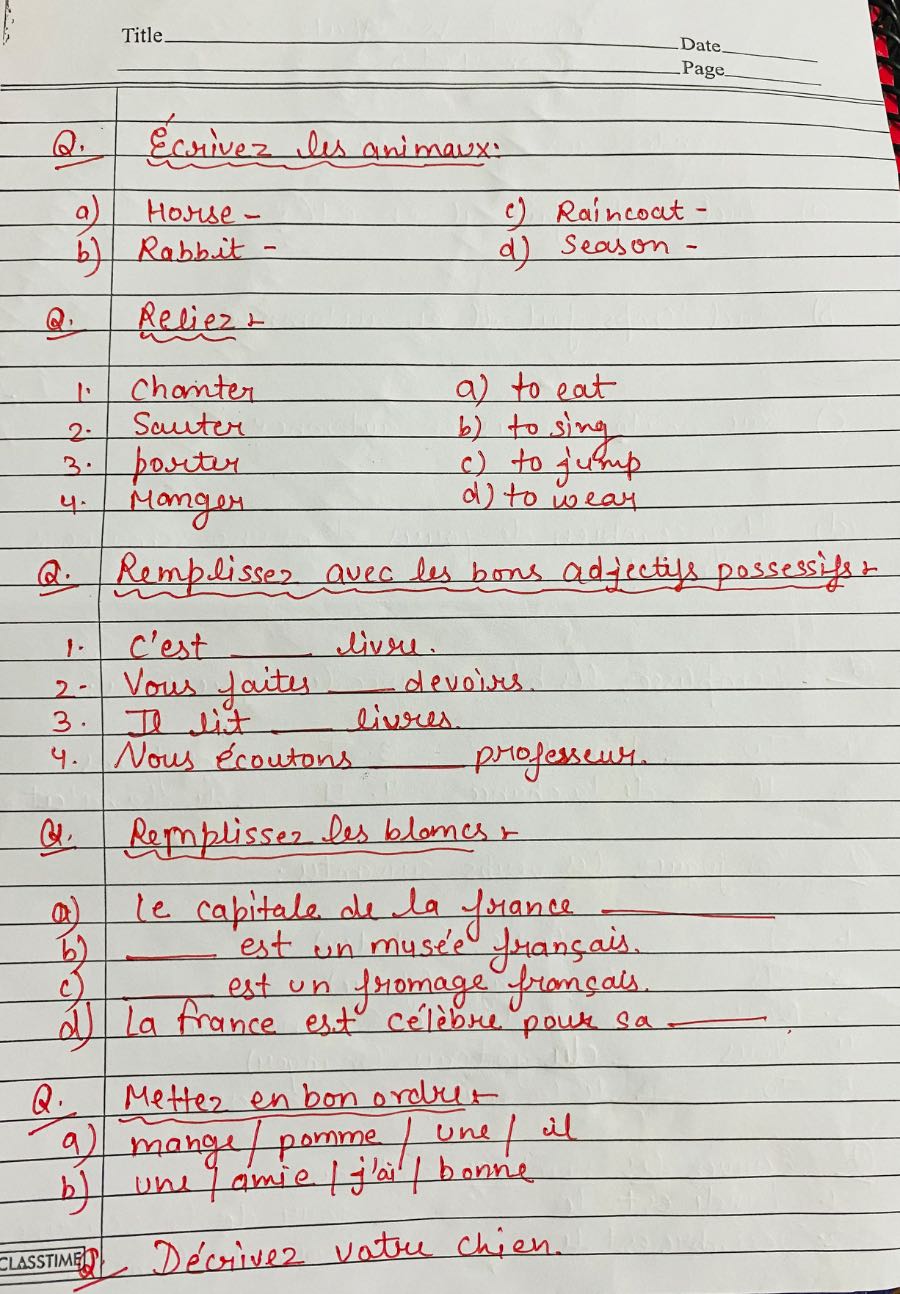 Title
Date
Page
Q. Écrivez les animaux:
a) Horse - c) Raincoat -
b) Rabbit - d) Season -
Q. Reliez :-
1. Chanter a) to eat
2. Sauter b) to sing
3. porter c) to jump
4. Manger d) to wear
Q. Remplissez avec les bons adjectifs possessifs :-
1. C'est ____ livre.
2- Vous faites ____ devoirs.
3. Il lit ____ livres.
4. Nous écoutons ____ professeur.
Q. Remplissez les blancs :-
a) Le capitale de la france ____
b) ____ est un musée français.
c) ____ est un fromage français.
d) La france est célèbre pour sa ____.
Q. Mettez en bon ordre :-
a) mange / pomme / une / il
b) une / amie / j'ai / bonne
CLASSTIME Q. Décrivez votre chien.